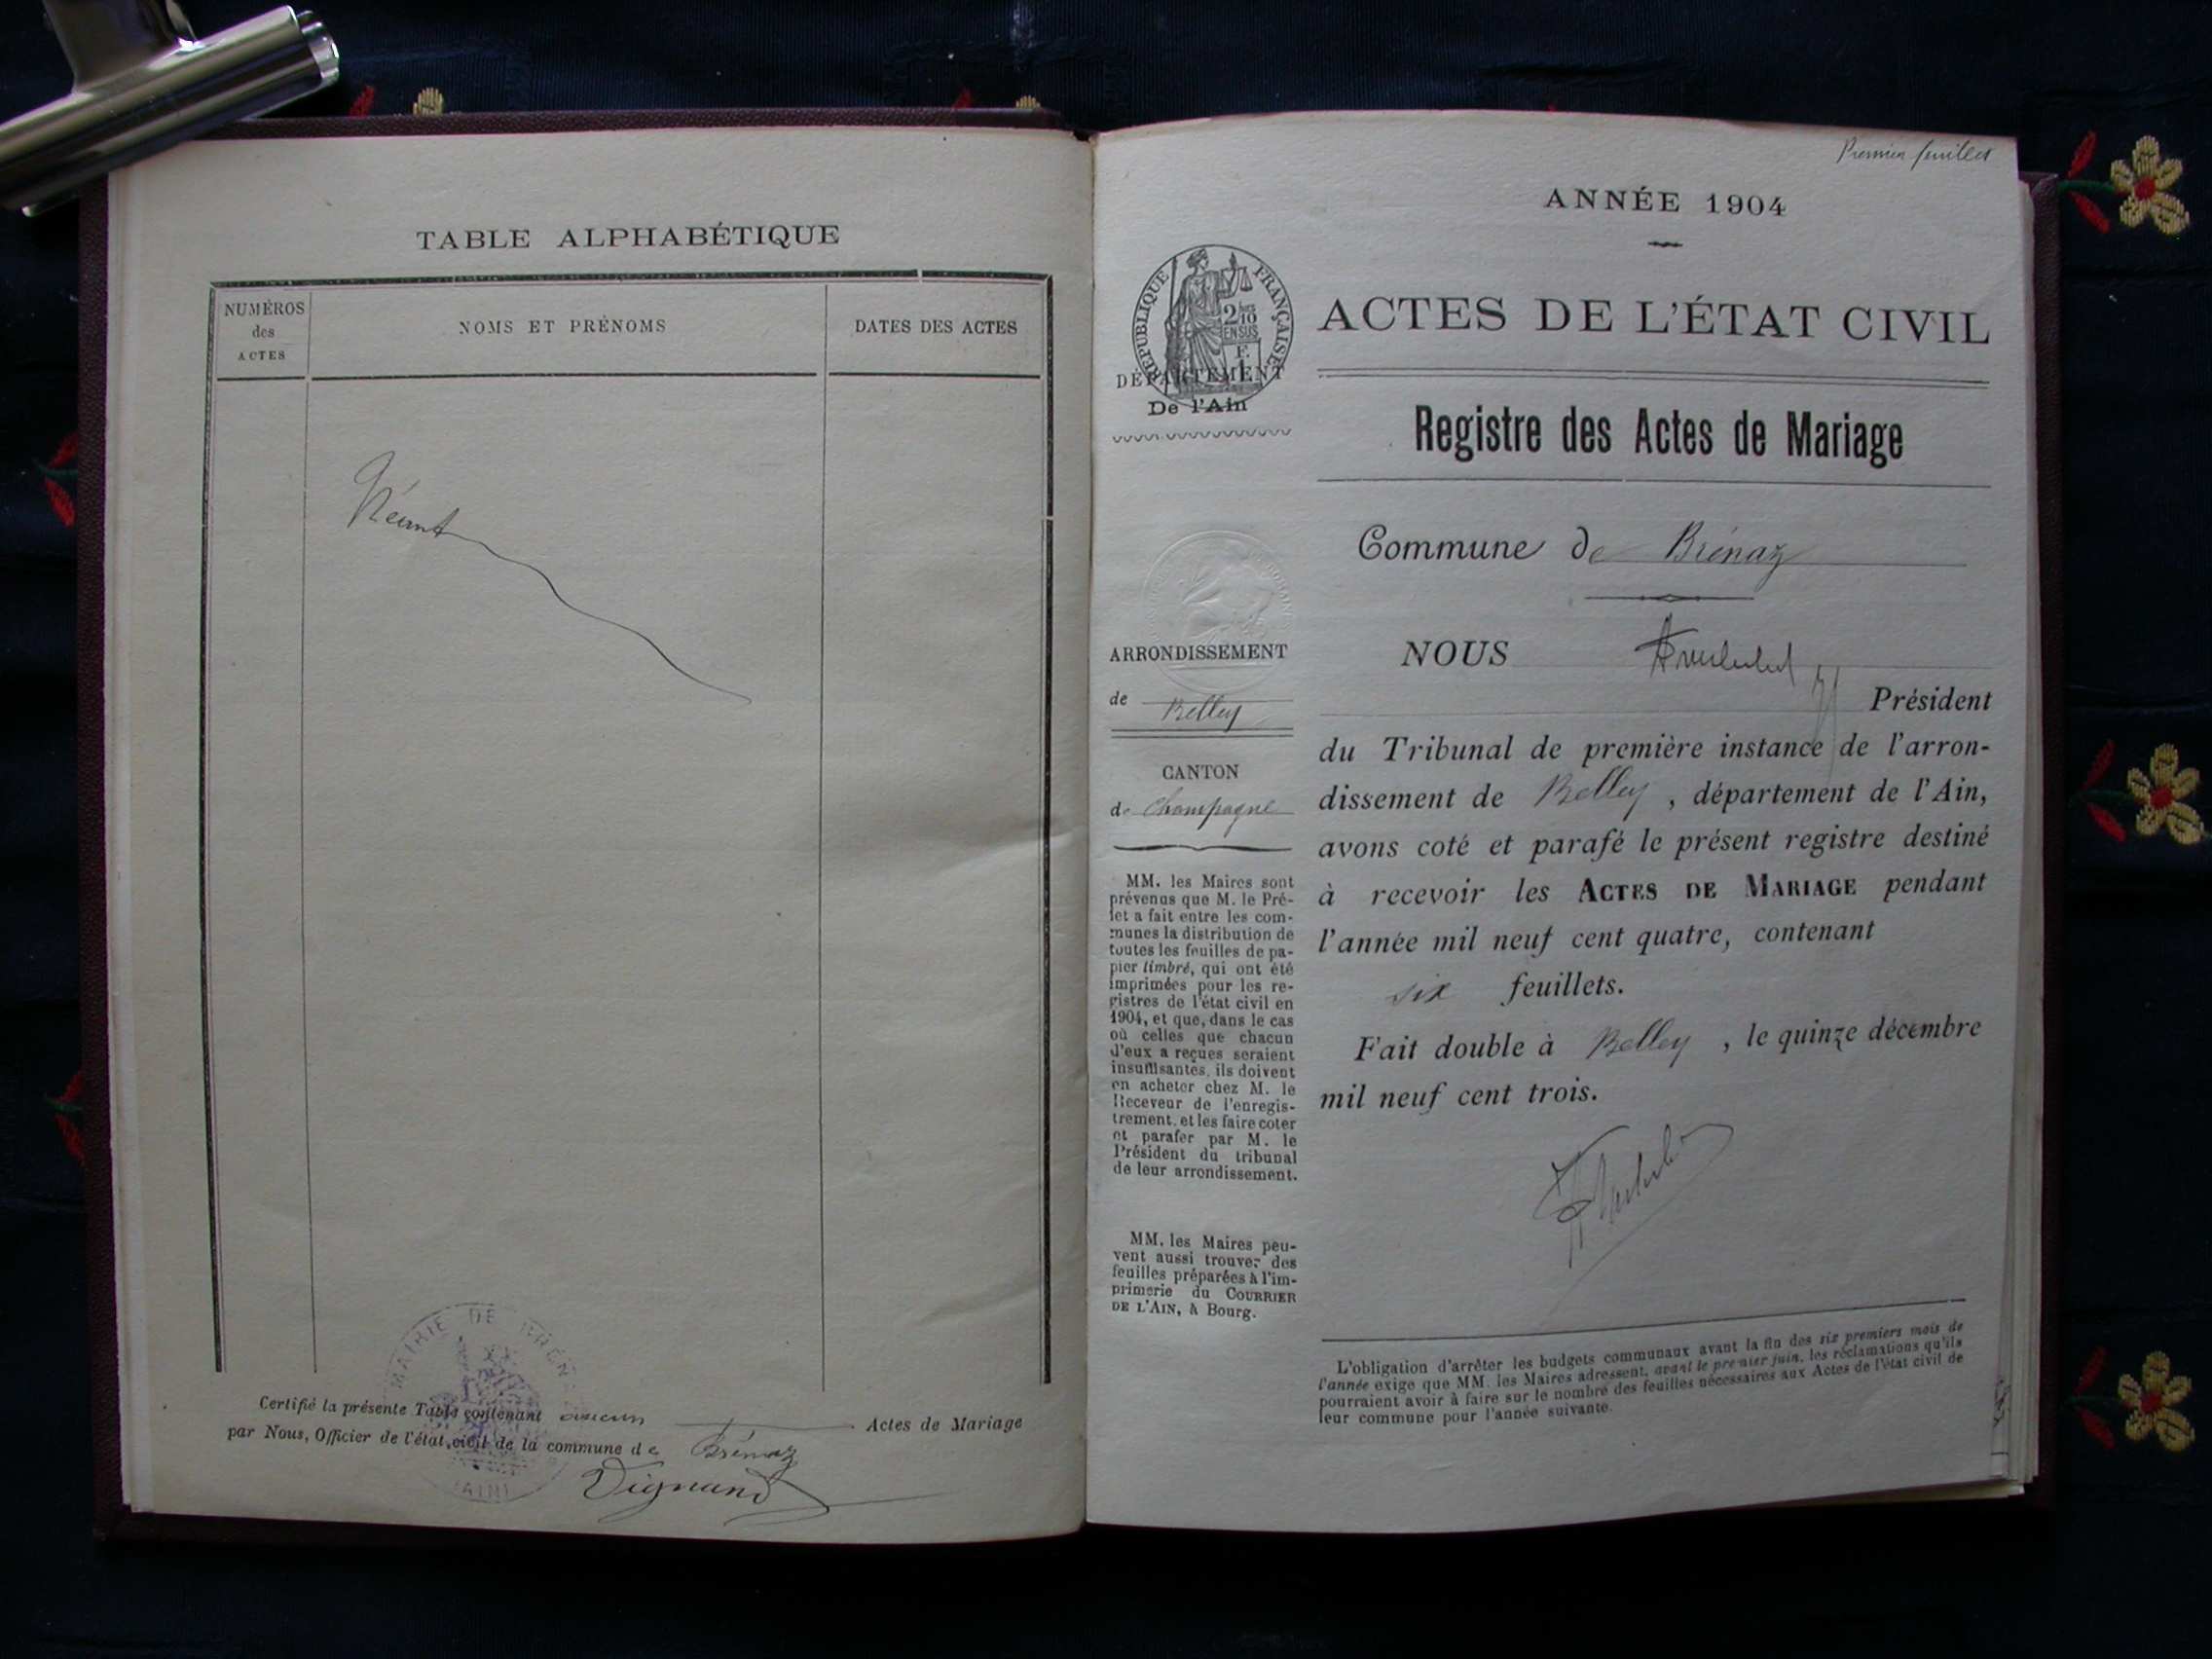 TABLE ALPHABÉTIQUE
NUMÉROS
des
ACTES
NOMS ET PRÉNOMS
DATES DES ACTES
Néant
MAIRIE DE BRÉN
(AIN)
Certifié la présente Table contenant aucun Actes de Mariage
par Nous, Officier de l'état civil de la commune de Brénaz
Vignand
Premier feuillet
ANNÉE 1904
RÉPUBLIQUE FRANÇAISE
2/10
EN SUS
F.
1
DÉPARTEMENT
De l'Ain
ARRONDISSEMENT
de Belley
CANTON
de Champagne
MM. les Maires sont
prévenus que M. le Pré-
fet a fait entre les com-
munes la distribution de
toutes les feuilles de pa-
pier timbré, qui ont été
imprimées pour les re-
gistres de l'état civil en
1904, et que, dans le cas
où celles que chacun
d'eux a reçues seraient
insuffisantes, ils doivent
en acheter chez M. le
Receveur de l'enregis-
trement, et les faire coter
et parafer par M. le
Président du tribunal
de leur arrondissement.
MM. les Maires peu-
vent aussi trouver des
feuilles préparées à l'im-
primerie du COURRIER
DE L'AIN, à Bourg.
ACTES DE L'ÉTAT CIVIL
Registre des Actes de Mariage
Commune de Brénaz
NOUS
Président
du Tribunal de première instance de l'arron-
dissement de Belley, département de l'Ain,
avons coté et parafé le présent registre destiné
à recevoir les ACTES DE MARIAGE pendant
l'année mil neuf cent quatre, contenant
six feuillets.
Fait double à Belley, le quinze décembre
mil neuf cent trois.
L'obligation d'arrêter les budgets communaux avant la fin des six premiers mois de
l'année exige que MM. les Maires adressent, avant le premier juin, les réclamations qu'ils
pourraient avoir à faire sur le nombre des feuilles nécessaires aux Actes de l'état civil de
leur commune pour l'année suivante.